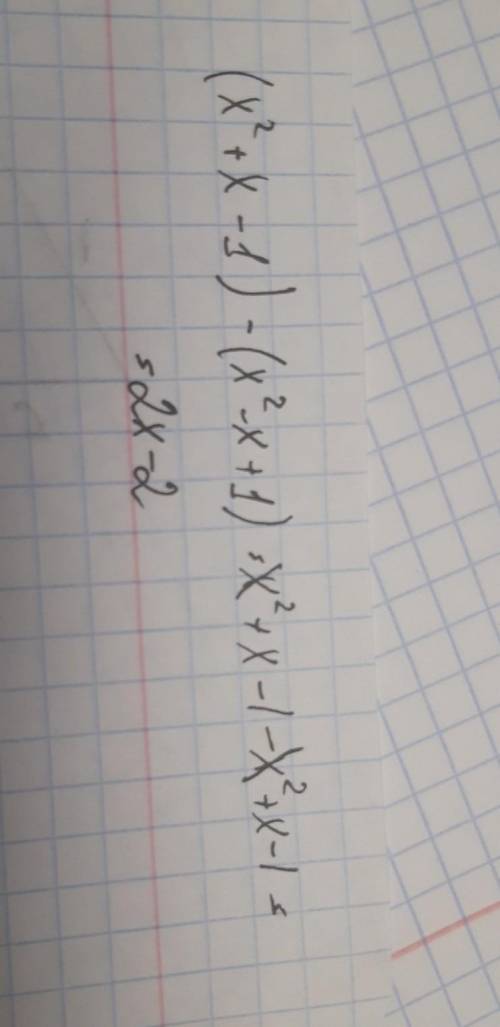 (x² + x - 1) - (x² - x + 1) = x² + x - 1 - x² + x - 1 =
= 2x - 2